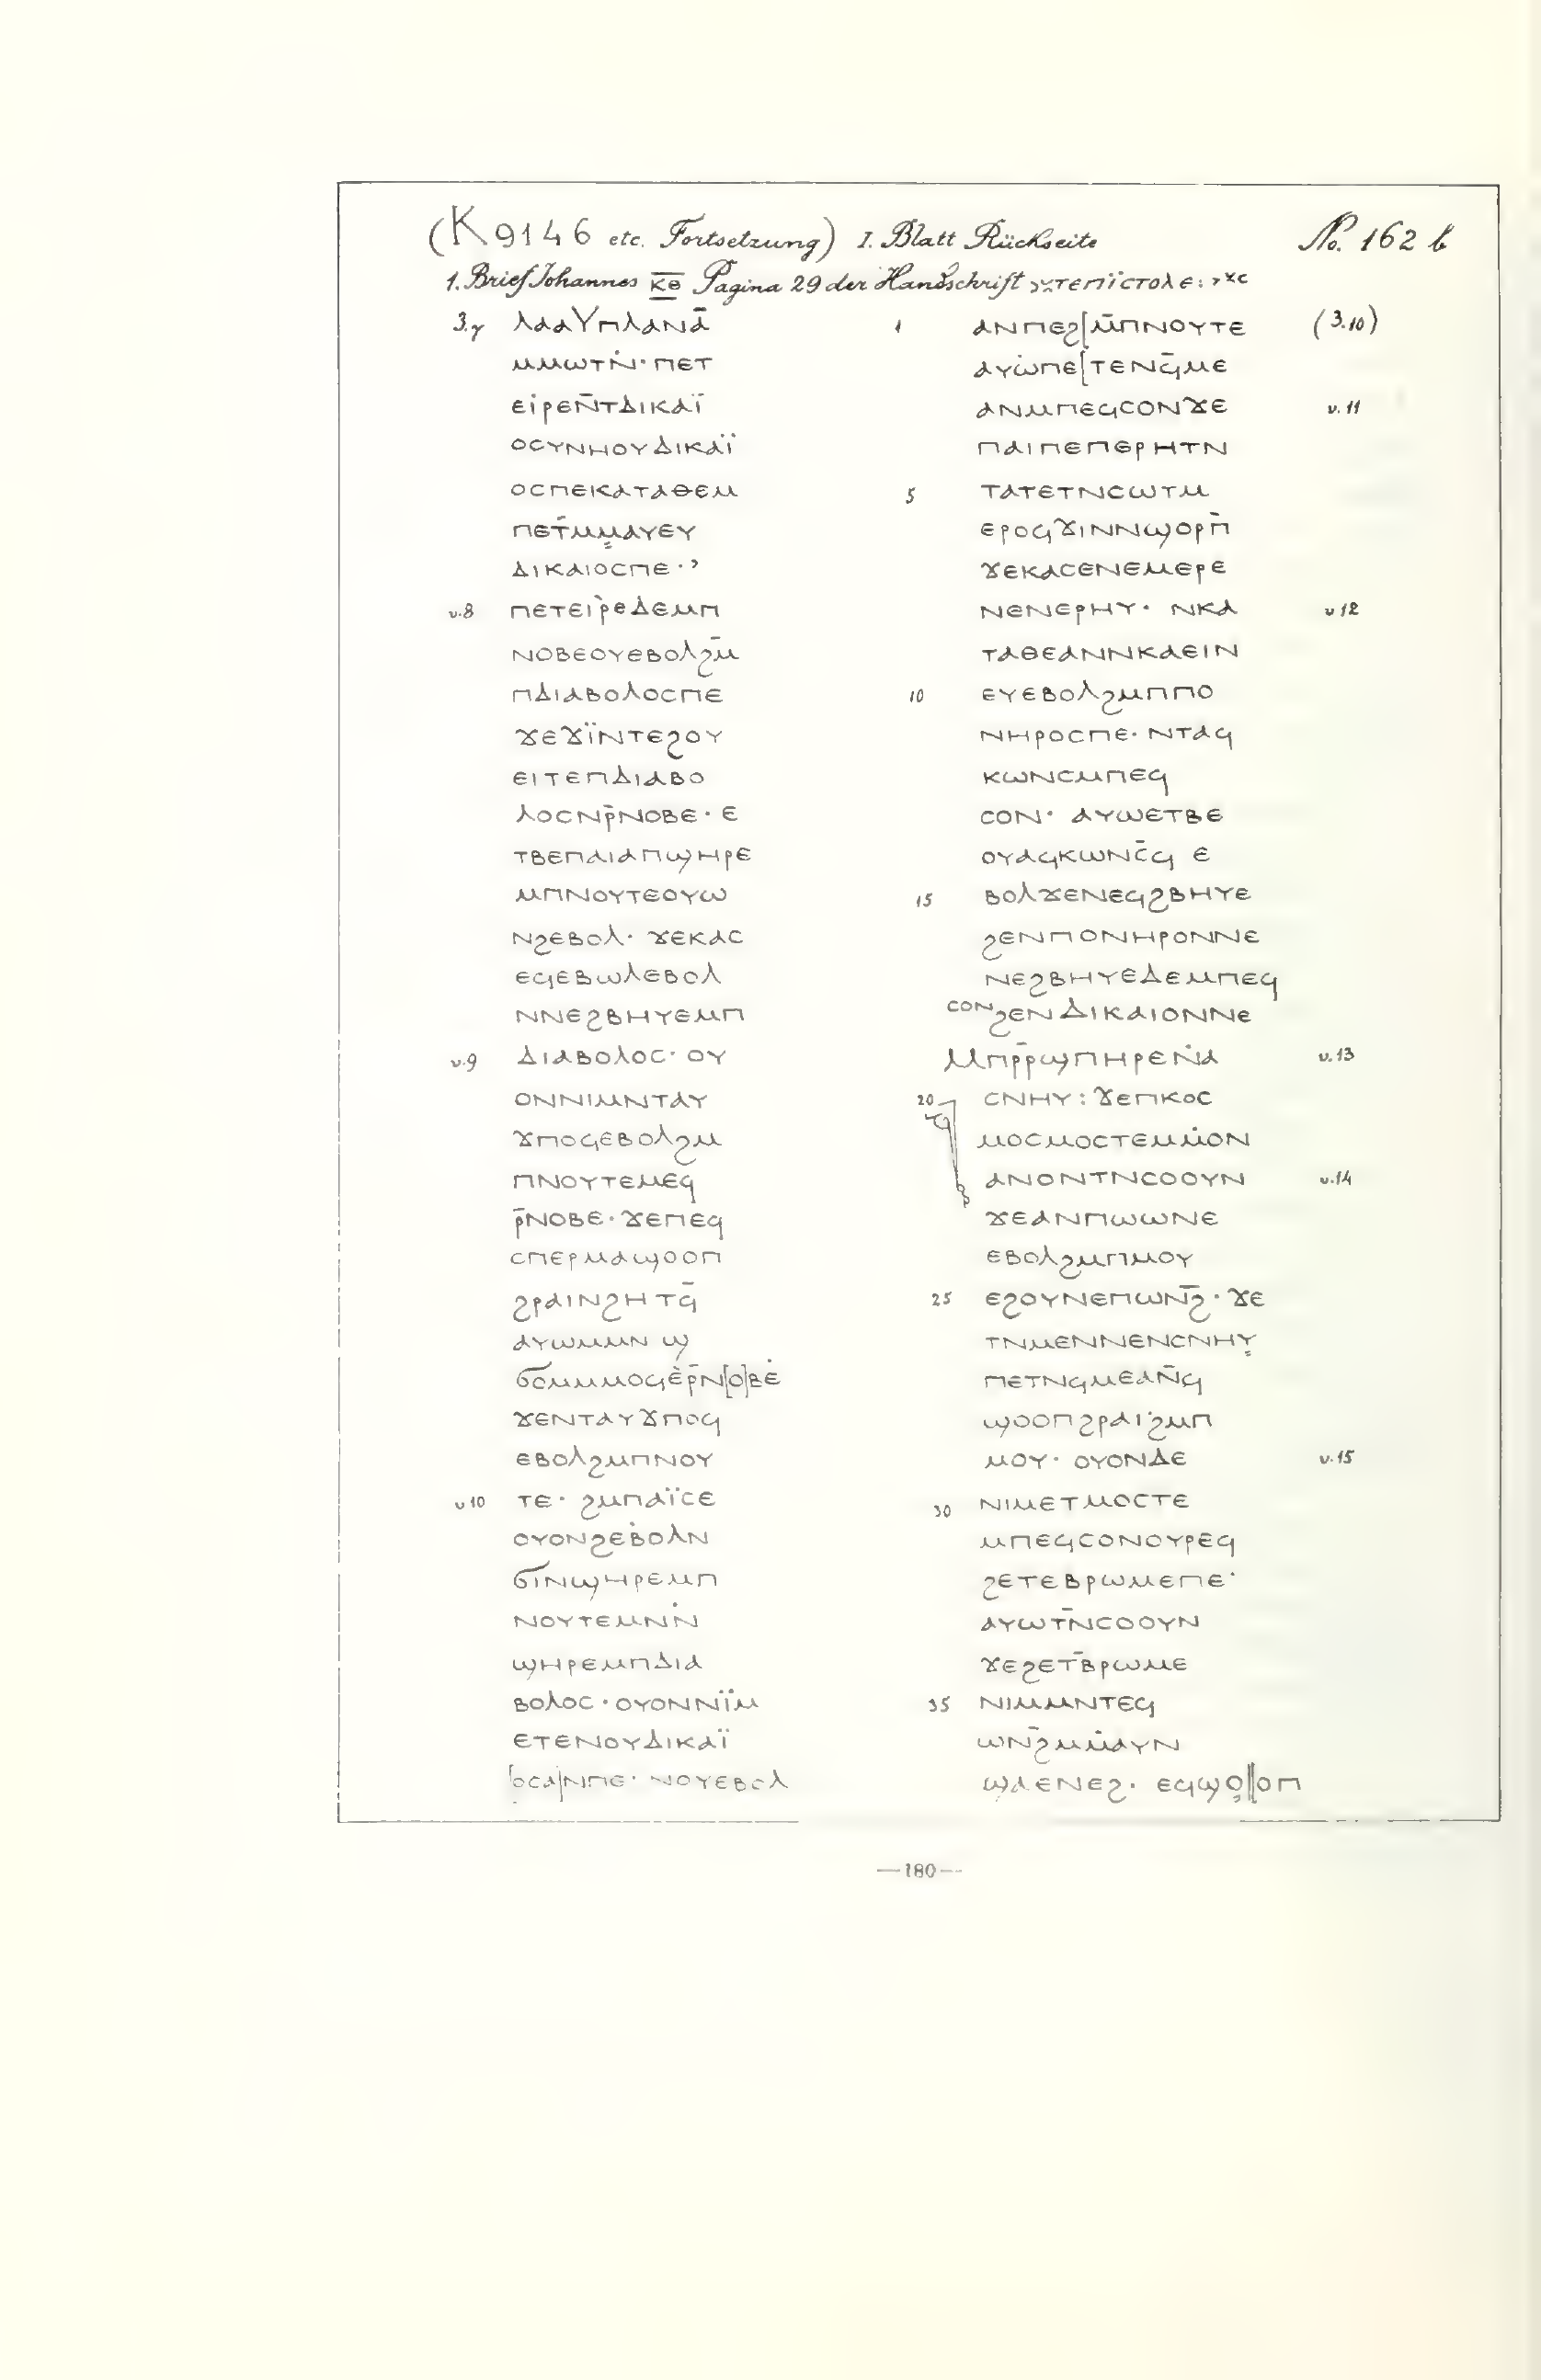 (K 9146 etc. Fortsetzung) I. Blatt Rückseite No. 162 b
1. Brief Johannes ⲕ̅ⲑ̅ Pagina 29 der Handschrift ⲧⲉⲡⲓ̈ⲥⲧⲟⲗⲉ:
3.7 ⲗⲁⲁⲩⲡⲗⲁⲛⲁ̄
ⲙⲙⲱⲧⲛ̇· ⲡⲉⲧ
ⲉⲓⲣⲉⲛ̄ⲧⲇⲓⲕⲁⲓ̈
ⲟⲥⲩⲛⲏⲟⲩⲇⲓⲕⲁⲓ̈
ⲟⲥⲡⲉⲕⲁⲧⲁⲑⲉⲙ
ⲡⲉⲧ̄ⲙⲙ̣ⲁⲩⲉⲩ
ⲇⲓⲕⲁⲓⲟⲥⲡⲉ·ʾ
v.8 ⲡⲉⲧⲉⲓⲣⲉⲇⲉⲙⲡ
ⲛⲟⲃⲉⲟⲩⲉⲃⲟⲗϩⲙ̄
ⲡⲇⲓⲁⲃⲟⲗⲟⲥⲡⲉ
ϫⲉϫⲓ̈ⲛⲧⲉϩⲟⲩ
ⲉⲓⲧⲉⲡⲇⲓⲁⲃⲟ
ⲗⲟⲥⲛⲣ̄ⲛⲟⲃⲉ· ⲉ
ⲧⲃⲉⲡⲁⲓⲁⲡϣⲏⲣⲉ
ⲙⲡⲛⲟⲩⲧⲉⲟⲩⲱ
ⲛϩⲉⲃⲟⲗ· ϫⲉⲕⲁⲥ
ⲉϥⲉⲃⲱⲗⲉⲃⲟⲗ
ⲛⲛⲉϩⲃⲏⲩⲉⲙⲡ
v.9 ⲇⲓⲁⲃⲟⲗⲟⲥ· ⲟⲩ
ⲟⲛⲛⲓⲙⲛⲧⲁⲩ
ϫⲡⲟϥⲉⲃⲟⲗϩⲙ
ⲡⲛⲟⲩⲧⲉⲙⲉϥ
ⲣ̄ⲛⲟⲃⲉ· ϫⲉⲡⲉϥ
ⲥⲡⲉⲣⲙⲁϣⲟⲟⲡ
ϩⲣⲁⲓⲛϩⲏⲧϥ̄
ⲁⲩⲱⲙⲙⲛ ϣ
ϭⲟⲙⲙⲙⲟϥⲉ̇ⲣ̄ⲛ[ⲟ]ⲃⲉ̇
ϫⲉⲛⲧⲁⲩϫⲡⲟϥ
ⲉⲃⲟⲗϩⲙⲡⲛⲟⲩ
v 10 ⲧⲉ· ϩⲙⲡⲁⲓ̈ⲥⲉ
ⲟⲩⲟⲛϩⲉⲃ̇ⲟⲗⲛ
ϭⲓⲛϣⲏⲣⲉⲙⲡ
ⲛⲟⲩⲧⲉⲙⲛⲛ̇
ϣⲏⲣⲉⲙⲡⲇⲓⲁ
ⲃⲟⲗⲟⲥ· ⲟⲩⲟⲛⲛⲓ̈ⲙ
ⲉⲧⲉⲛⲟⲩⲇⲓⲕⲁⲓ̈
[ⲟⲥⲁ]ⲛⲡⲉ· ⲛⲟⲩⲉⲃⲟⲗ
1 ⲁⲛⲡⲉϩ[ⲙ̄ⲡⲛⲟⲩⲧⲉ (3.10)
ⲁⲩⲱ̇ⲡⲉ[ⲧⲉⲛϥ̄ⲙⲉ
ⲁⲛⲙⲡⲉϥⲥⲟⲛϫⲉ v. 11
ⲡⲁⲓⲡⲉⲡⲉⲣⲏⲧⲛ
5 ⲧⲁⲧⲉⲧⲛⲥⲱⲧⲙ
ⲉⲣⲟϥϫⲓⲛⲛϣⲟⲣⲡ̄
ϫⲉⲕⲁⲥⲉⲛⲉⲙⲉⲣⲉ
ⲛⲉⲛⲉⲣⲏⲩ· ⲛⲕⲁ v 12
ⲧⲁⲑⲉⲁⲛⲛⲕⲁⲉⲓⲛ
10 ⲉⲩⲉⲃⲟⲗϩⲙⲡⲡⲟ
ⲛⲏⲣⲟⲥⲡⲉ· ⲛⲧⲁϥ
ⲕⲱⲛⲥⲙⲡⲉϥ
ⲥⲟⲛ· ⲁⲩⲱⲉⲧⲃⲉ
ⲟⲩⲁϥⲕⲱⲛⲥ̄ϥ ⲉ
15 ⲃⲟⲗϫⲉⲛⲉϥϩⲃⲏⲩⲉ
ϩⲉⲛⲡⲟⲛⲏⲣⲟⲛⲛⲉ
ⲛⲉϩⲃⲏⲩⲉⲇⲉⲙⲡⲉϥ
ⲥⲟⲛϩⲉⲛⲇⲓⲕⲁⲓⲟⲛⲛⲉ
ⲙⲡⲣ̄ⲣϣⲡⲏⲣⲉⲛ̇ⲁ v. 13
20 ⲥⲛⲏⲩ: ϫⲉⲡⲕⲟⲥ
ⲙⲟⲥⲙⲟⲥⲧⲉⲙⲙ̇ⲟⲛ
ⲁⲛⲟⲛⲧⲛⲥⲟⲟⲩⲛ v.14
ϫⲉⲁⲛⲡⲱⲱⲛⲉ
ⲉⲃⲟⲗϩⲙⲡⲙⲟⲩ
25 ⲉϩⲟⲩⲛⲉⲡⲱⲛϩ̄· ϫⲉ
ⲧⲛⲙⲉⲛⲛⲉⲛⲥⲛⲏⲩ̣
ⲡⲉⲧⲛϥⲙⲉⲁⲛ̄ϥ
ϣⲟⲟⲡϩⲣⲁⲓ̈ϩⲙⲡ
ⲙⲟⲩ· ⲟⲩⲟⲛⲇⲉ v.15
30 ⲛⲓⲙⲉⲧⲙⲟⲥⲧⲉ
ⲙⲡⲉϥⲥⲟⲛⲟⲩⲣⲉϥ
ϩⲉⲧⲉⲃⲣⲱⲙⲉⲡⲉ·
ⲁⲩⲱⲧⲛ̄ⲥⲟⲟⲩⲛ
ϫⲉϩⲉⲧⲃ̄ⲣⲱⲙⲉ
35 ⲛⲓⲙⲙⲛⲧⲉϥ
ⲱⲛϩ̄ⲙⲙ̇ⲁⲩⲛ
ϣⲁⲉⲛⲉϩ· ⲉϥϣⲟ̣[[ⲟⲡ
—180—